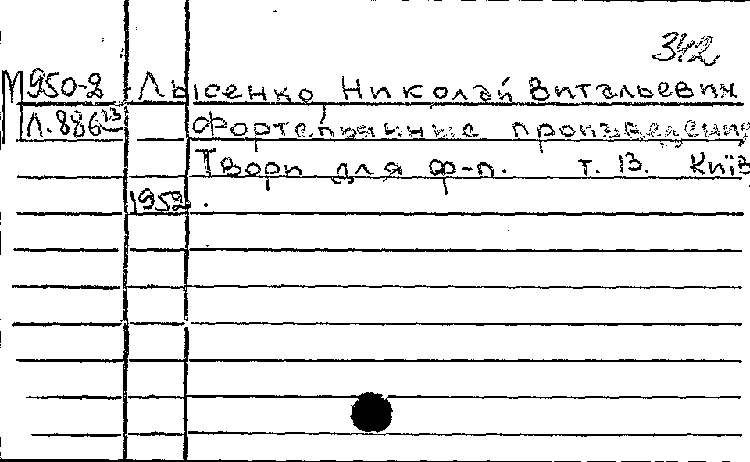 342
М950-2 Лысенко, Николай Витальевич
Л.886¹³ Фортепьянные произведения
Твори для ф-п. т. 13. Київ
1952.